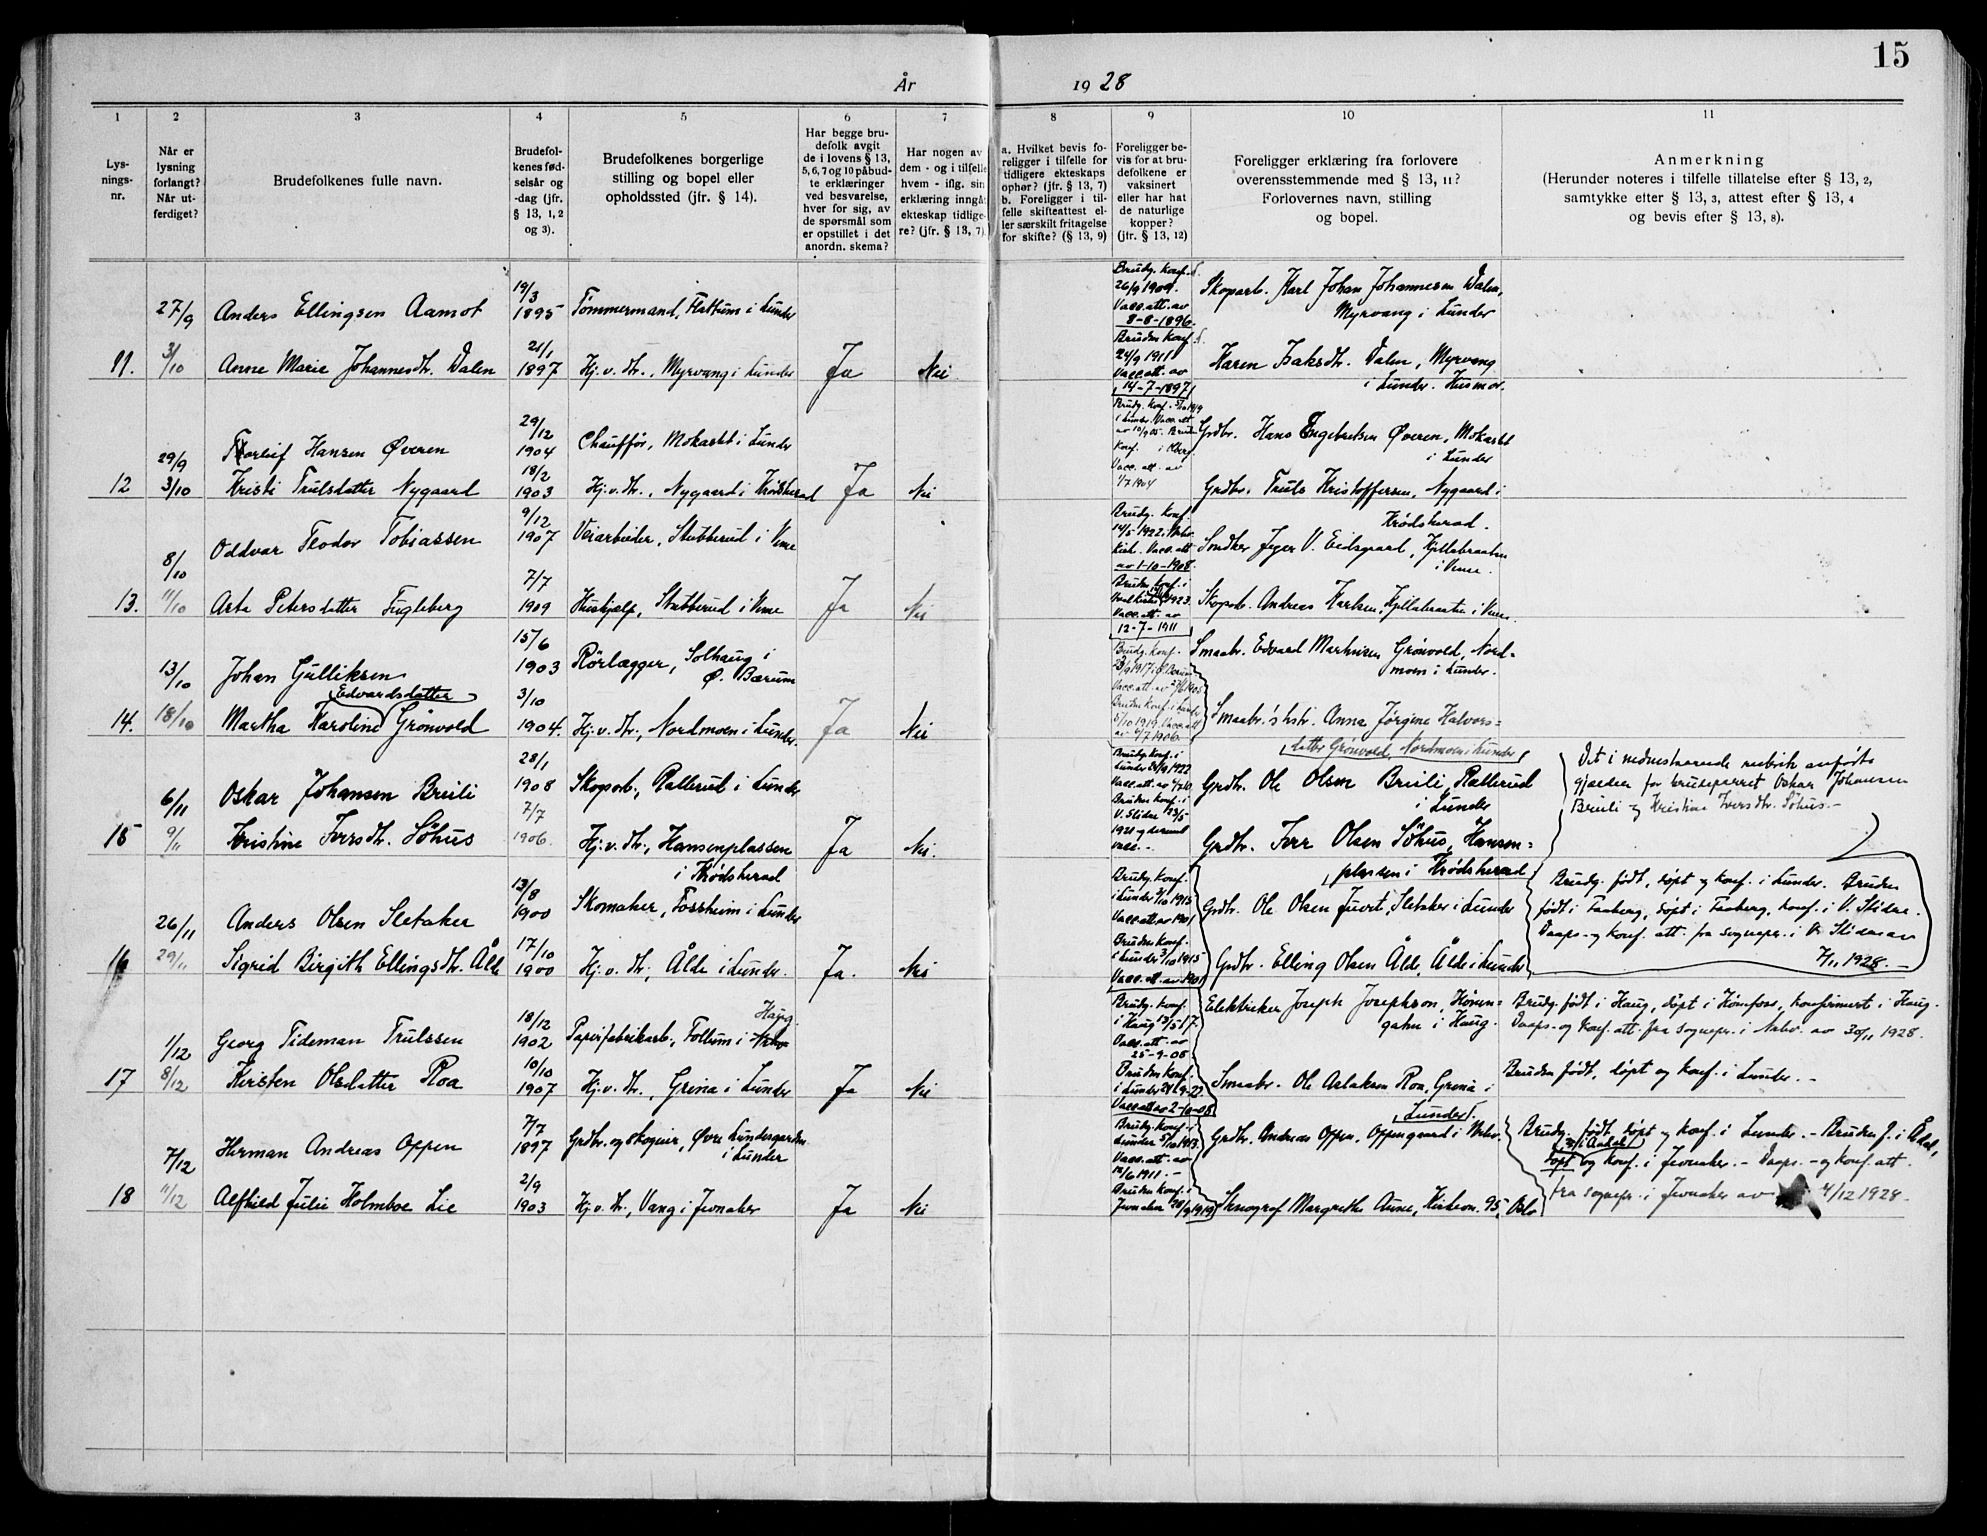 15
År 1928
1 2 3 4 5 6 7 8 9 10 11
Lys-
nings-
nr.
Når er
lysning
forlangt?
Når ut-
ferdiget?
Brudefolkenes fulle navn.
Brudefol-
kenes fød-
selsår og
-dag (jfr.
§ 13, 1, 2
og 3).
Brudefolkenes borgerlige
stilling og bopel eller
opholdssted (jfr. § 14).
Har begge bru-
defolk avgit
de i lovens § 13,
5, 6, 7 og 10 påbud-
te erklæringer
ved besvarelse,
hver for sig, av
de spørsmål som
er opstillet i det
anordn. skema?
Har nogen av
dem - og i tilfelle
hvem - iflg. sin
erklæring inngåt
ekteskap tidlige-
re? (jfr. § 13, 7).
a. Hvilket bevis fo-
religger i tilfelle for
tidligere ekteskaps
ophør? (jfr. § 13, 7)
b. Foreligger i til-
felle skifteattest el-
ler særskilt fritagelse
for skifte? (§ 13, 9)
Foreligger be-
vis for at bru-
defolkene er
vaksinert
eller har hat
de naturlige
kopper?
(jfr. § 13, 12)
Foreligger erklæring fra forlovere
overensstemmende med § 13, 11?
Forlovernes navn, stilling
og bopel.
Anmerkning
(Herunder noteres i tilfelle tillatelse efter § 13, 2,
samtykke efter § 13, 3, attest efter § 13, 4
og bevis efter § 13, 8).
27/9 Anders Ellingsen Aamot 19/3 1895 Tømmermand, Flattum i Lunder
Brudg. konf.
26/9 1909.
Vacc. att. av
8-8-1896.
Skoparb. Karl Johan Johannesen Dalen,
Myrvang i Lunder
11. 3/10 Anne Marie Johannesdtr. Dalen 21/1 1897 Hj. v. dtr., Myrvang i Lunder Ja Nei
Bruden konf.
24/9 1911
Vacc. att. av
14-7-1897
Karen Isaksdtr. Dalen, Myrvang
i Lunder. Husmor.
29/9 Torleif Hansen Øveren 29/12 1904 Chauffør, Mokastet i Lunder
Brudg. konf. 5/10 1919
i Lunder. Vacc. att.
av 10/9 05. Bruden
konf.
Vacc. att. av
1/7 1904
Grdbr. Hans Engebretsen Øveren, Mokastet
i Lunder
12 3/10 Kristi Trulsdatter Nygaard 18/2 1903 Hj. v. dtr., Nygaard i Krødsherad Ja Nei
Grdbr. Truls Kristoffersen, Nygaard i
Krødsherad.
8/10 Oddvar Teodor Tobiassen 9/12 1907 Veiarbeider, Stubberud i Veme
Brudg. konf.
14/5 1922. Norderhov
kirk. Vacc. att.
av 1-10-1908.
V. Eidsgaard, Kjellabraaten
i Veme.
13. 11/10 Asta Petersdatter Fugleberg 7/7 1909 Hushjelp, Stubberud i Veme Ja Nei
Bruden konf. i
1923.
Vacc. att. av
12-7-1911
Skoparb. Andreas Karlsen, Kjellabraaten i Veme.
13/10 Johan Gulliksen 15/6 1903 Rørlægger, Solhaug i
Ø. Bærum
Brudg. konf.
Smaabr. Edvard Martinsen Grønvold, Nord-
moen i Lunder.
Edvardsdatter
14. 18/10 Martha Karoline Grønvold 3/10 1904. Hj. v. dtr., Nordmoen i Lunder. Ja Nei
Bruden konf. i Lunder
5/10 1919. Vacc. att.
av 4/7 1906.
Smaabr's hstr. Anna Jørgine Halvors-
datter Grønvold, Nordmoen i Lunder
6/11 Oskar Johansen Bruli 28/1 1908 Skoparb., Rallerud i Lunder
Brudg. konf. i
Lunder 24/9 1922
Grdbr. Ole Olsen Bruli, Rallerud
i Lunder
Det i nedenstaaende rubrik anførte
gjælder for brudeparret Oskar Johansen
Bruli og Kristine Iversdtr. Søhus.-
15 9/11 Kristine Iversdtr. Søhus 7/7 1906. Hj. v. dtr., Hansenplassen
i Krødsherad Ja Nei.
Bruden konf. i
V. Slidre 23/5
1921
Grdbr. Iver Olsen Søhus, Hansen-
plassen i Krødsherad
Brudg. født, døpt og konf. i Lunder. Bruden
født i Faaberg, døpt i Faaberg, konf. i V. Slidre.
Daaps- og konf. att. fra sognepr. i V. Slidre av
7/11 1928.
26/11 Anders Olsen Sletaker 13/8 1900 Skomaker, Fossheim i Lunder
Brudg. konf.
i Lunder 3/10 1915
Vacc. att. av 1901
Grdbr. Ole Olsen Juvet, Sletaker i Lunder
16 29/11 Sigrid Birgith Ellingsdtr. Ålde 17/10 1900 Hj. v. dtr., Ålde i Lunder. Ja. Nei
Bruden konf.
i Lunder 3/10 1915
Vacc. att. av 1901
Grdbr. Elling Olsen Ålde, Ålde i Lunder
1/12 Georg Tideman Trulssen 18/12 1902 Papirfabrikarb., Follum i Haug.
Brudg. konf.
i Haug 13/5 17.
Vacc. att. av
25-9-05.
Elektriker Joseph Josephson, Hønen-
gahn i Haug.
Brudg. født i Haug, døpt i Hønefoss, konfirmert i Haug.
Daaps- og konf. att. fra sognepr. i Nrhv. av 30/11 1928.
17 8/12 Kirsten Olsdatter Roa 10/10 1907 Hj. v. dtr., Grena i Lunder Ja Nei
Bruden konf.
i Lunder 24-9-22.
Smaabr. Ole Aslaksen Roa, Grena i
Lunder.
Bruden født, døpt og konf. i Lunder.-
7/12 Herman Andreas Oppen 7/7 1897 Grdbr. og skogeier, Øvre Lundesgaarden
i Lunder
Brudg. konf. i
Lunder 5/10 1913.
Vacc. att. av
14/6 1911.-
Grdbr. Andreas Oppen. Oppengaard i Nrhv.
Brudg. født, døpt og konf. i Lunder.- Bruden f. i Ådal,
døpt og konf. i Jevnaker.- Daaps- og konf. att.
fra sognepr. i Jevnaker av 4/12 1928.
18 11/12 Alfhild Julie Holmboe Lie 2/9 1903 Hj. v. dtr., Vang i Jevnaker Ja Nei
Bruden konf. i
Jevnaker
Stenograf Margrethe Aune, Kirkevn. 95, Oslo